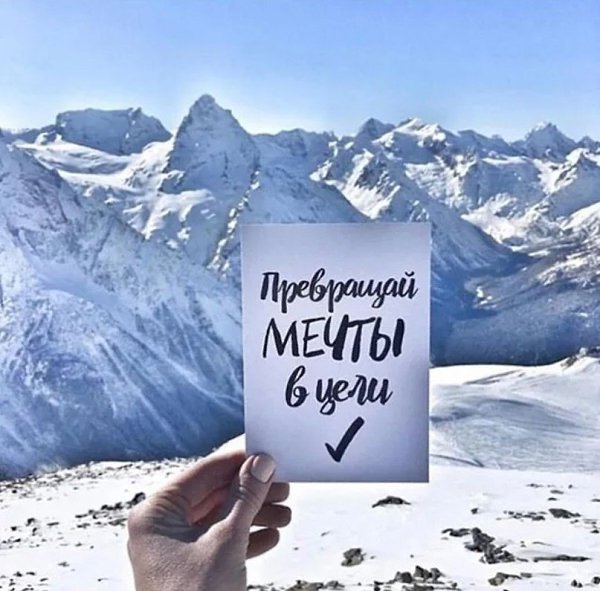 Превращай
МЕЧТЫ
в цели